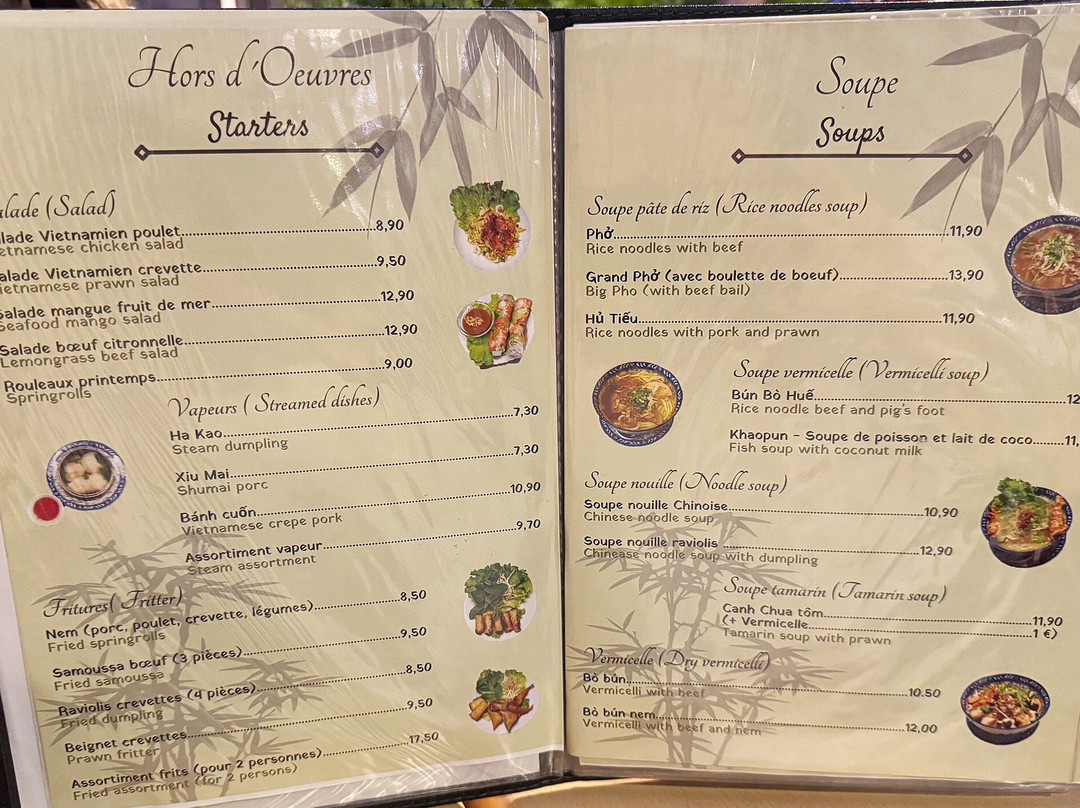 Hors d'Oeuvres
Starters
alade (Salad)
lade Vietnamien poulet.....8,90
etnamese chicken salad
alade Vietnamien crevette.....9,50
ietnamese prawn salad
Salade mangue fruit de mer.....12,90
Seafood mango salad
Salade bœuf citronnelle.....12,90
Lemongrass beef salad
Rouleaux printemps.....9,00
Springrolls
Vapeurs ( Streamed dishes)
Ha Kao.....7,30
Steam dumpling
Xiu Mai.....7,30
Shumai porc
Bánh cuốn.....10,90
Vietnamese crepe pork
Assortiment vapeur.....9,70
Steam assortment
Fritures( Fritter)
Nem (porc, poulet, crevette, légumes).....8,50
Fried springrolls
Samoussa bœuf (3 pièces).....9,50
Fried samoussa
Raviolis crevettes (4 pièces).....8,50
Fried dumpling
Beignet crevettes.....9,50
Prawn fritter
Assortiment frits (pour 2 personnes).....17,50
Fried assortment (for 2 persons)
Soupe
Soups
Soupe pâte de riz (Rice noodles soup)
Phở.....11,90
Rice noodles with beef
Grand Phở (avec boulette de boeuf).....13,90
Big Pho (with beef bail)
Hủ Tiếu.....11,90
Rice noodles with pork and prawn
Soupe vermicelle (Vermicelli soup)
Bún Bò Huế.....12
Rice noodle beef and pig's foot
Khaopun - Soupe de poisson et lait de coco.....11,
Fish soup with coconut milk
Soupe nouille (Noodle soup)
Soupe nouille Chinoise.....10,90
Chinese noodle soup
Soupe nouille raviolis.....12,90
Chinease noodle soup with dumpling
Soupe tamarin (Tamarin soup)
Canh Chua tôm.....11,90
(+ Vermicelle.....1 €)
Tamarin soup with prawn
Vermicelle (Dry vermicelli)
Bò bún.....10.50
Vermicelli with beef
Bò bún nem.....12,00
Vermicelli with beef and nem